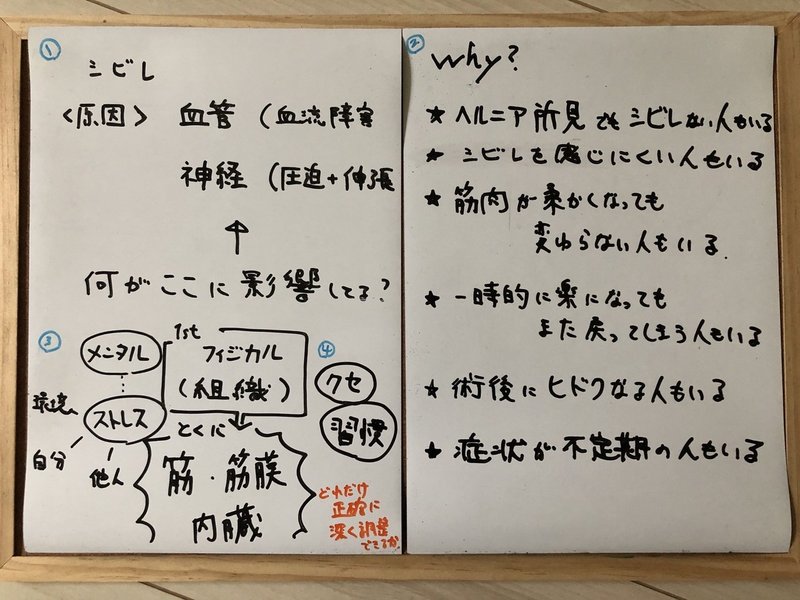 ①
シビレ
<原因> 血管 (血流障害
神経 (圧迫+伸張
↑
何がここに影響してる?
③
メンタル
ストレス
環境
自分
他人
1st
フィジカル
(組織)
とくに
筋・筋膜
内臓
④
クセ
習慣
どれだけ
正確に
深く調整
できるか.
②
Why?
★ ヘルニア所見でもシビレない人もいる
★ シビレを感じにくい人もいる
★ 筋肉が柔かくなっても
変わらない人もいる.
★ 一時的に楽になっても
また戻ってしまう人もいる
★ 術後にヒドクなる人もいる
★ 症状が不定期の人もいる